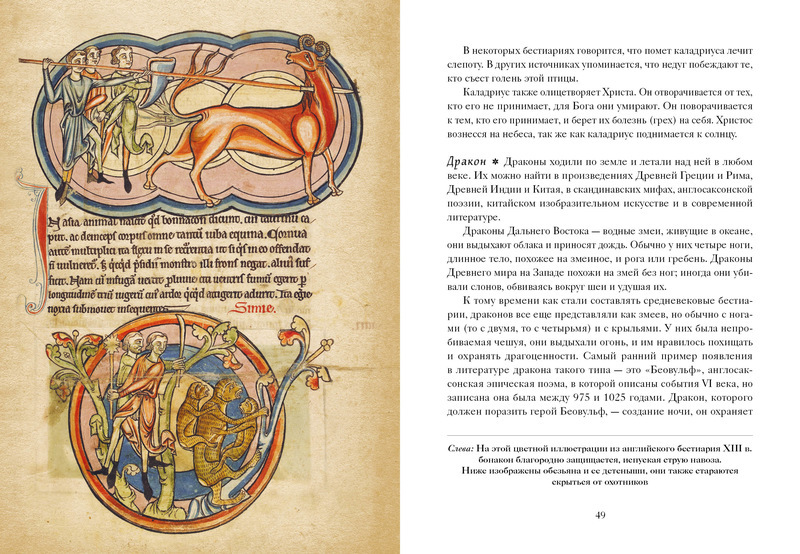 asia animal nascit qd bonnacon dicunt, cui taurinu ca
put. ac deinceps corpus omne tantu iuba equina. Cornua
autem multiplici ita flexu in se ut siqs in eo offendat
n vulneret. qcqd psidii monstro illi frons negat. alvus suf
ficit. Nam cu fuga ventris fumum egerit p
longitudine triu iugerum cui ardor qcqd attigerit adurit. Ita
noxia submovet insequentes. Simie.
В некоторых бестиариях говорится, что помет каладриуса лечит
слепоту. В других источниках упоминается, что недуг побеждают те,
кто съест голень этой птицы.
Каладриус также олицетворяет Христа. Он отворачивается от тех,
кто его не принимает, для Бога они умирают. Он поворачивается
к тем, кто его принимает, и берет их болезнь (грех) на себя. Христос
вознесся на небеса, так же как каладриус поднимается к солнцу.
Дракон ✵ Драконы ходили по земле и летали над ней в любом
веке. Их можно найти в произведениях Древней Греции и Рима,
Древней Индии и Китая, в скандинавских мифах, англосаксонской
поэзии, китайском изобразительном искусстве и в современной
литературе.
Драконы Дальнего Востока — водные змеи, живущие в океане,
они выдыхают облака и приносят дождь. Обычно у них четыре ноги,
длинное тело, похожее на змеиное, и рога или гребень. Драконы
Древнего мира на Западе похожи на змей без ног; иногда они уби-
вали слонов, обвиваясь вокруг шеи и удушая их.
К тому времени как стали составлять средневековые бестиа-
рии, драконов все еще представляли как змеев, но обычно с нога-
ми (то с двумя, то с четырьмя) и с крыльями. У них была непро-
биваемая чешуя, они выдыхали огонь, и им нравилось похищать
и охранять драгоценности. Самый ранний пример появления
в литературе дракона такого типа — это «Беовульф», англосак-
сонская эпическая поэма, в которой описаны события VI века, но
записана она была между 975 и 1025 годами. Дракон, которого
должен поразить герой Беовульф, — создание ночи, он охраняет
Слева: На этой цветной иллюстрации из английского бестиария XIII в.
бонакон благородно защищается, испуская струю навоза.
Ниже изображены обезьяна и ее детеныши, они также стараются
скрыться от охотников
49